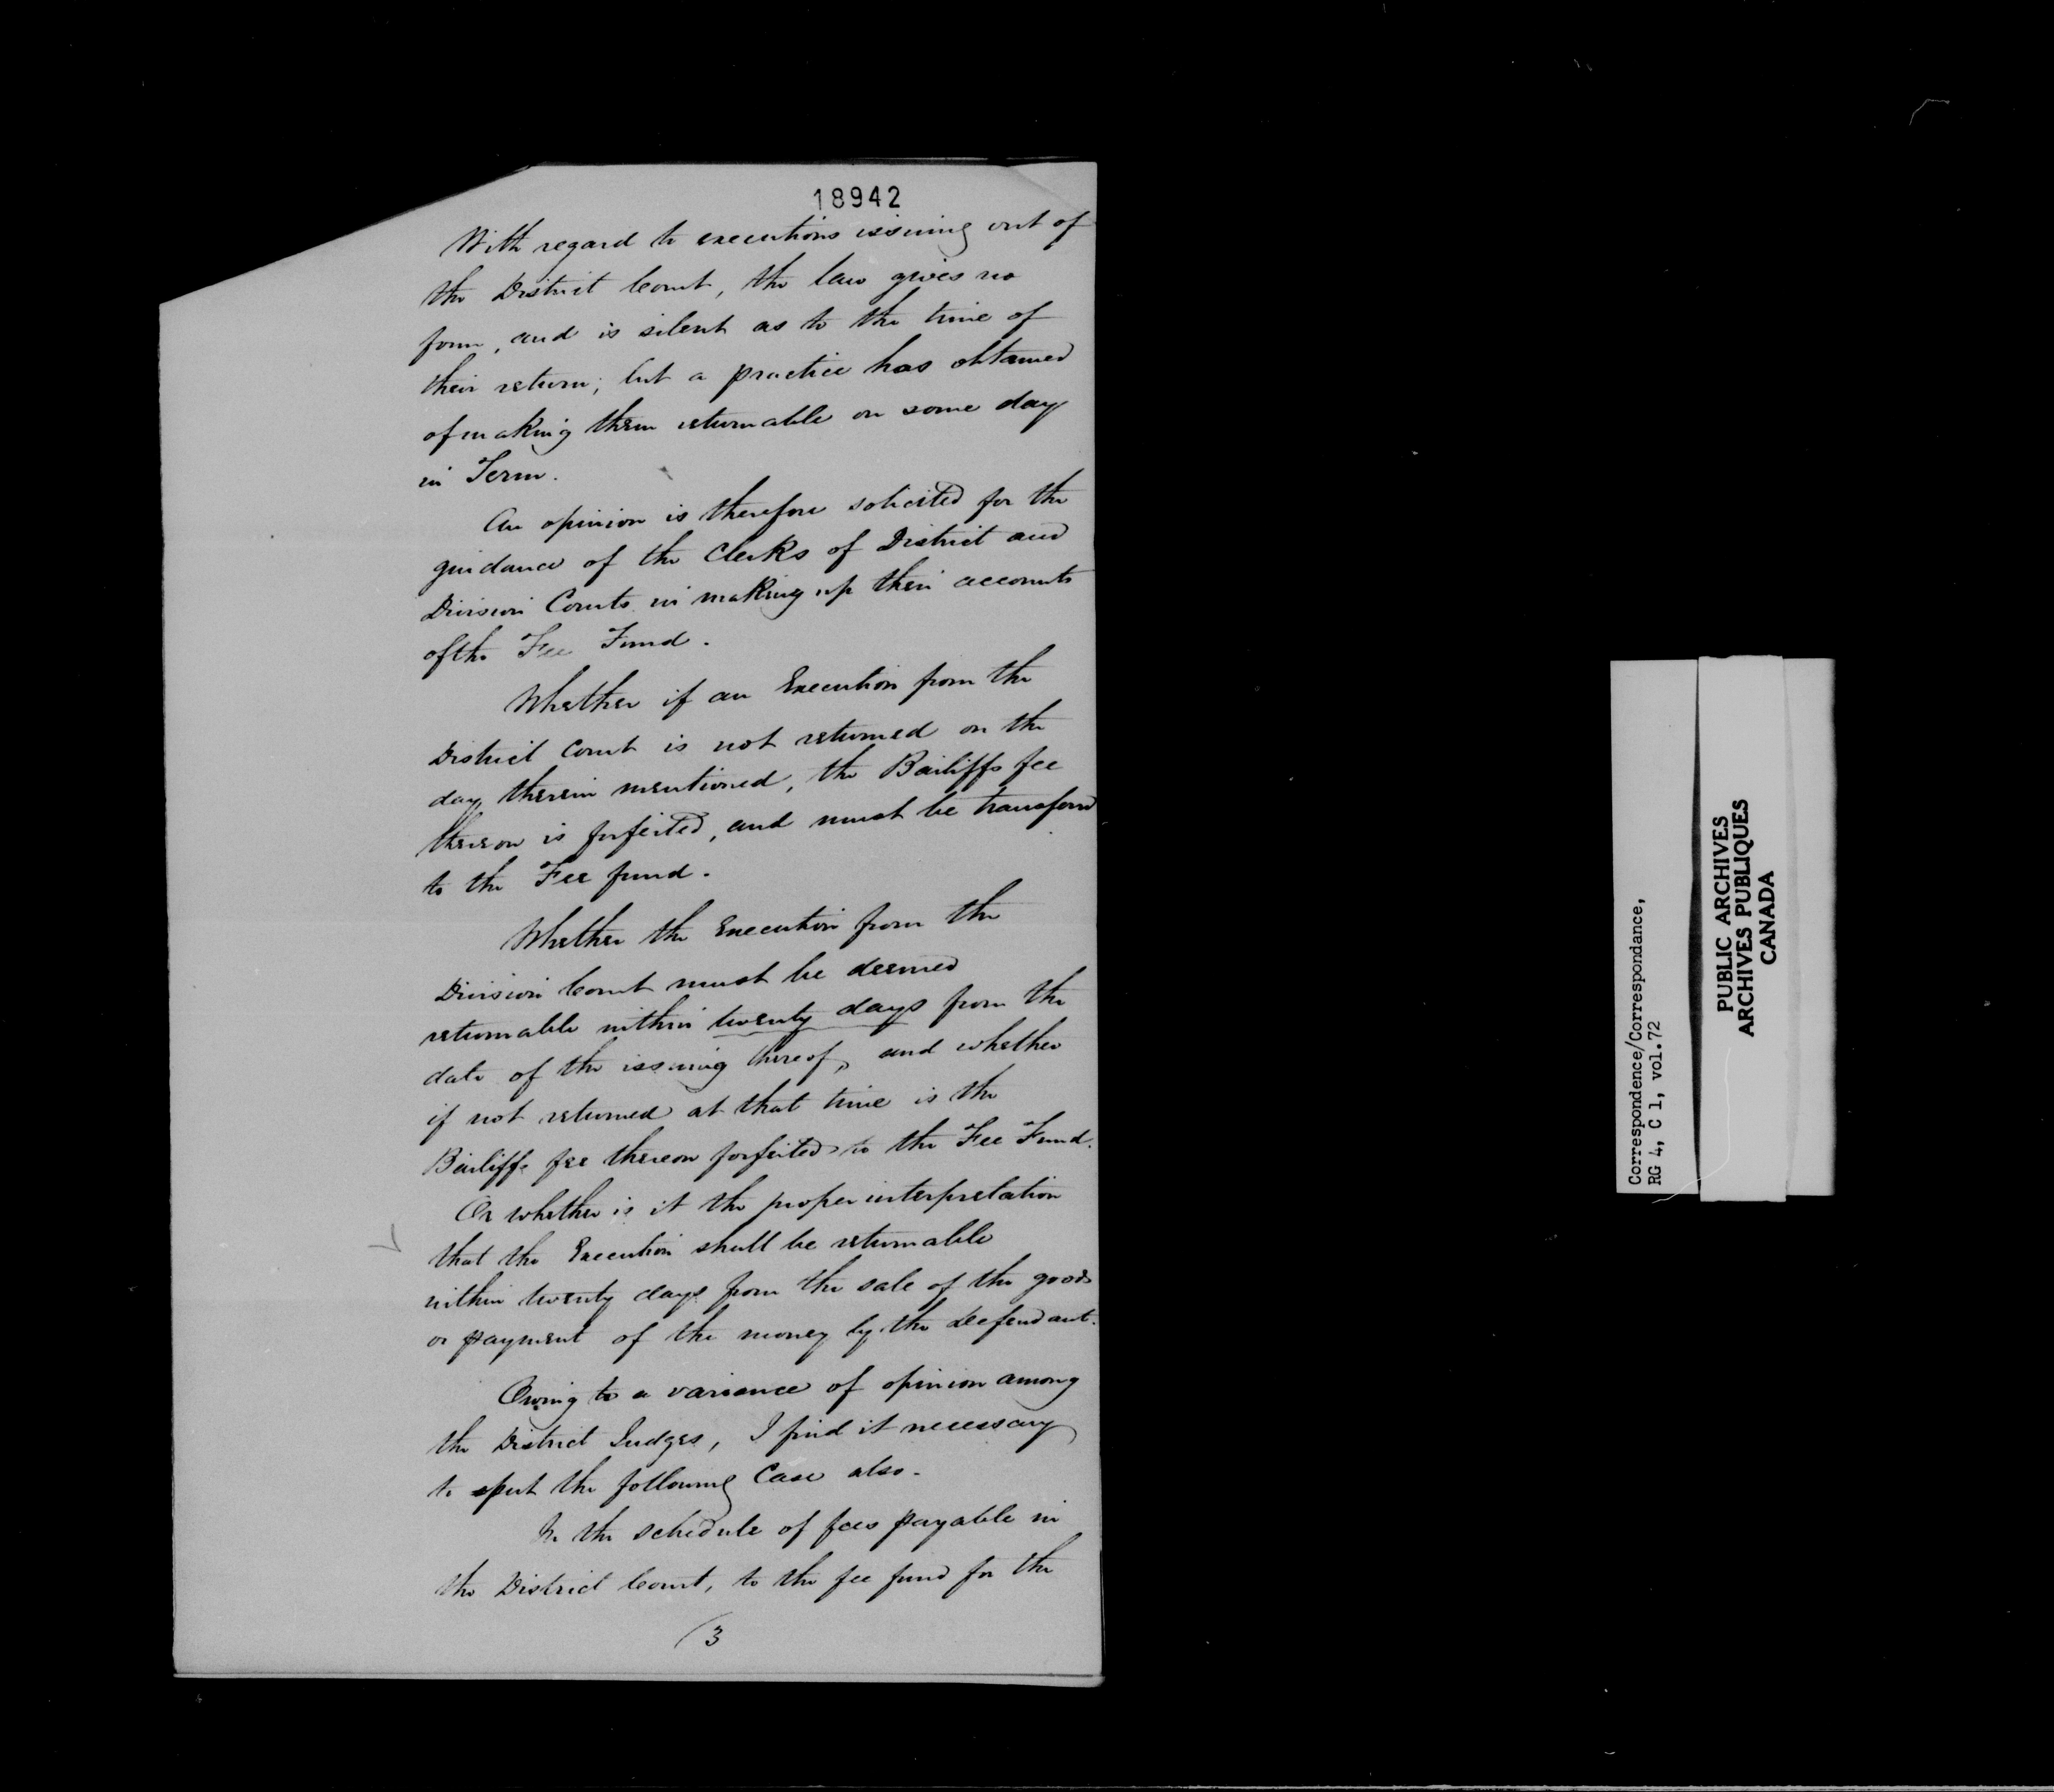 18942
With regard to executions issuing out of
the District Court, the law gives no
form, and is silent as to the time of
their return; but a practice has obtained
of making them returnable on some day
in Term.
An opinion is therefore solicited for the
guidance of the Clerks of District and
Division Courts in making up their accounts
of the Fee Fund.
Whether if an Execution from the
District Court is not returned on the
day therein mentioned, the Bailiffs fee
thereon is forfeited, and must be transferred
to the Fee fund.
Whether the Execution from the
Division Court must be deemed
returnable within twenty days from the
date of the issuing thereof, and whether
if not returned at that time is the
Bailiffs fee thereon forfeited to the Fee Fund.
Or whether is it the proper interpretation
that the Execution shall be returnable
within twenty days from the sale of the goods
or payment of the money by the Defendant.
Owing to a variance of opinion among
the District Judges, I find it necessary
to put the following Case also.
In the schedule of fees payable in
the District Court, to the fee fund for the
(3
Correspondence/Correspondance,
RG 4, C 1, vol.72
PUBLIC ARCHIVES
ARCHIVES PUBLIQUES
CANADA